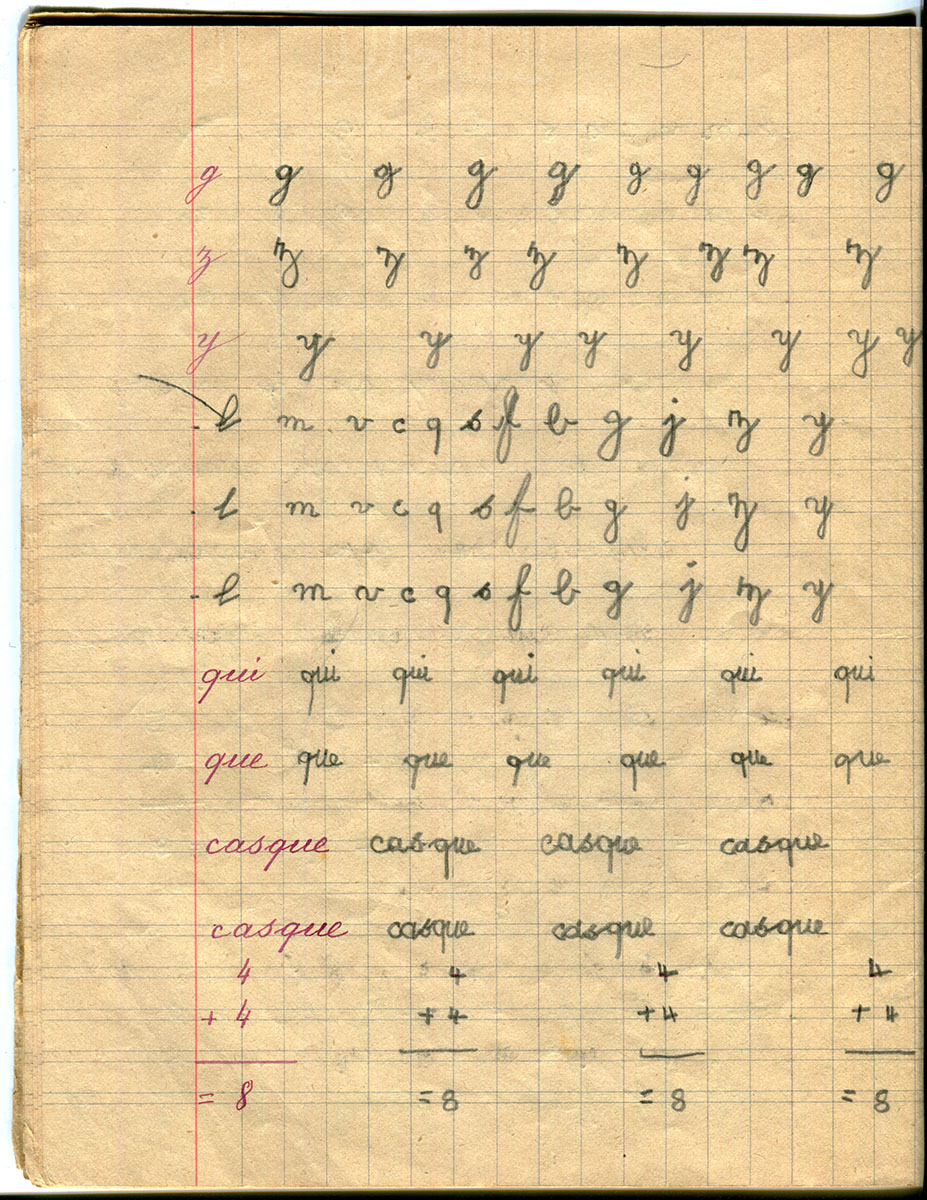 g g g g g g g g g g
z z z z z z z z z
y y y y y y y y y
- l m v c q s f b g j z y
- l m v c q s f b g j z y
- l m v c q s f b g j z y
qui qui qui qui qui qui qui
que que que que que que que
casque casque casque casque
casque casque casque casque
4 4 4 4
+ 4 + 4 + 4 + 4
= 8 = 8 = 8 = 8